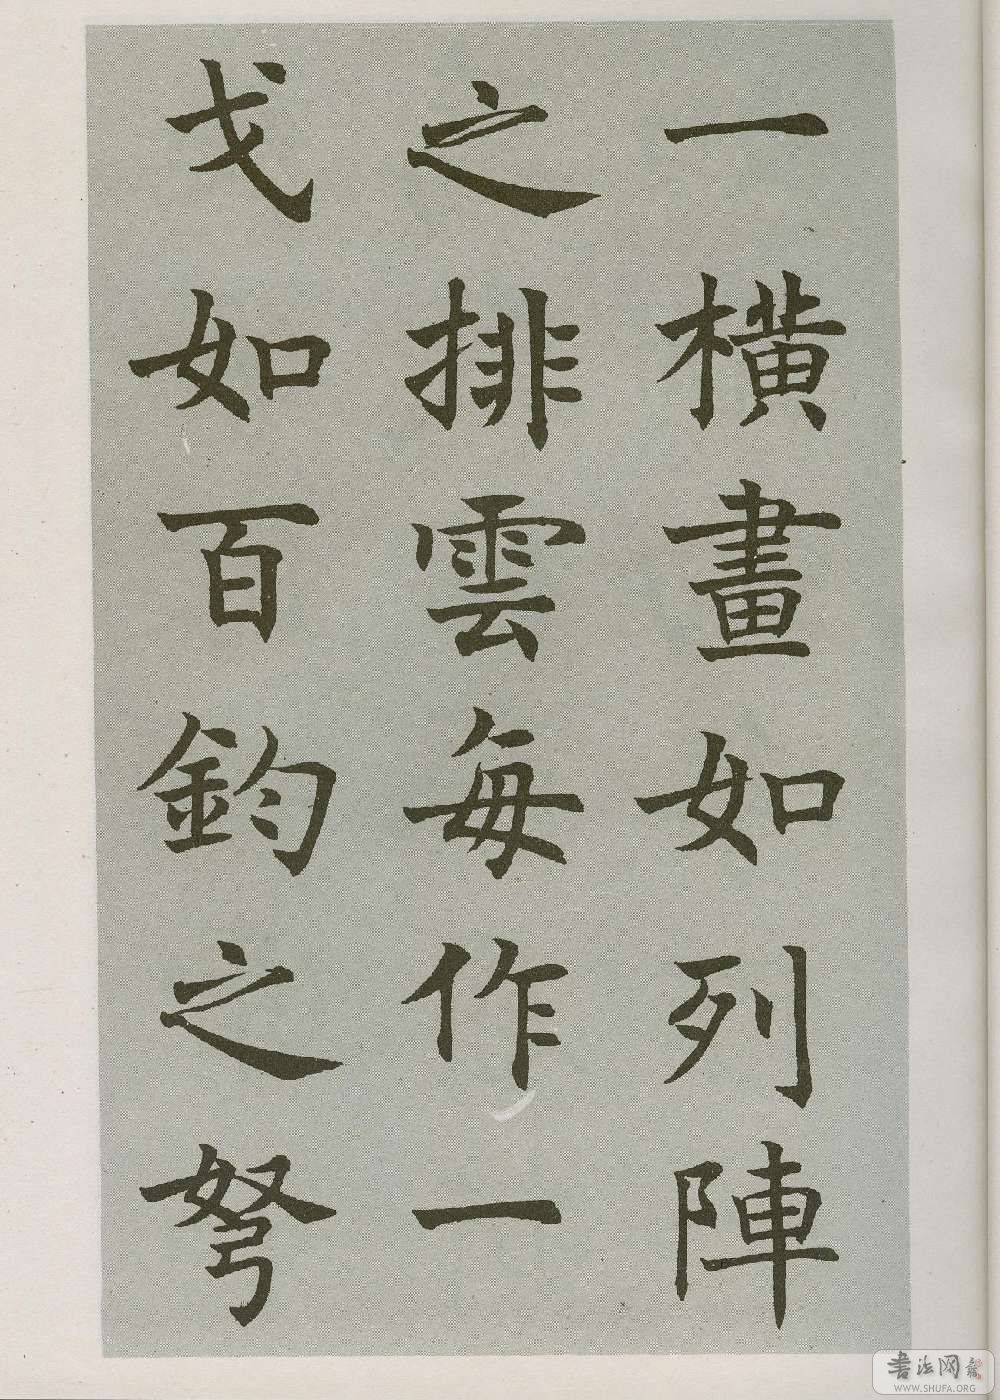 一橫畫如列陣
之排雲每作一
戈如百鈞之弩
書法网
WWW.SHUFA.ORG